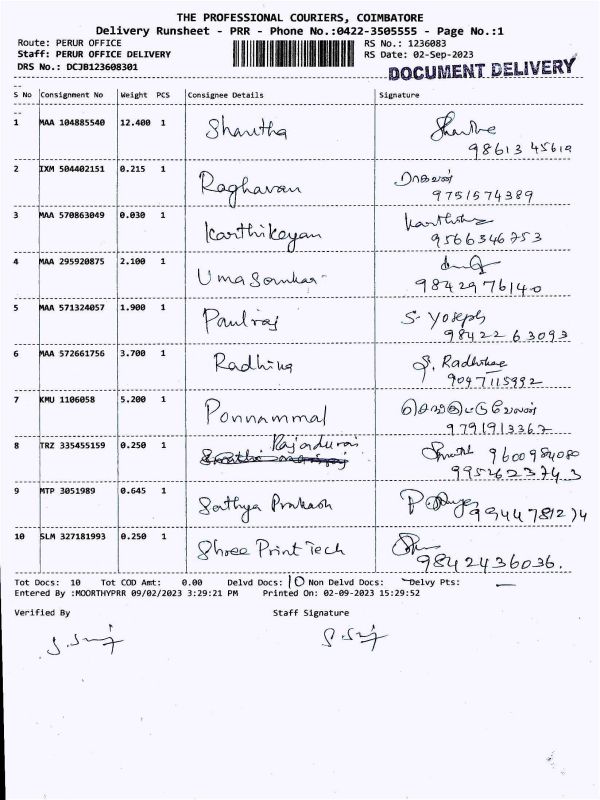 THE PROFESSIONAL COURIERS, COIMBATORE
Delivery Runsheet - PRR - Phone No.:0422-3505555 - Page No.:1
Route: PERUR OFFICE RS No.: 1236083
Staff: PERUR OFFICE DELIVERY RS Date: 02-Sep-2023
DRS No.: DCJB123608301 DOCUMENT DELIVERY
S No Consignment No Weight PCS Consignee Details Signature
1 MAA 104885540 12.400 1 Shantha
98613 45619
2 IXM 504402151 0.215 1 Raghavan ராகவன்
9751574389
3 MAA 570863049 0.030 1 Karthikeyan
9566346753
4 MAA 295920875 2.100 1
9842976140
5 MAA 571324057 1.900 1 Paulraj S. Yoseph
98422 63093
6 MAA 572661756 3.700 1 Radhina
9047115992
7 KMU 1106058 5.200 1 Ponnammal
9791913367
8 TRZ 335455159 0.250 1 Rajadurai 9600984080
9952623743
9 MTP 3051989 0.645 1 Sathya Prakash
9944781274
10 SLM 327181993 0.250 1 Shree Print Tech
9842436036.
Tot Docs: 10 Tot COD Amt: 0.00 Delvd Docs: 10 Non Delvd Docs: Delvy Pts:
Entered By :MOORTHYPRR 09/02/2023 3:29:21 PM Printed On: 02-09-2023 15:29:52
Verified By Staff Signature